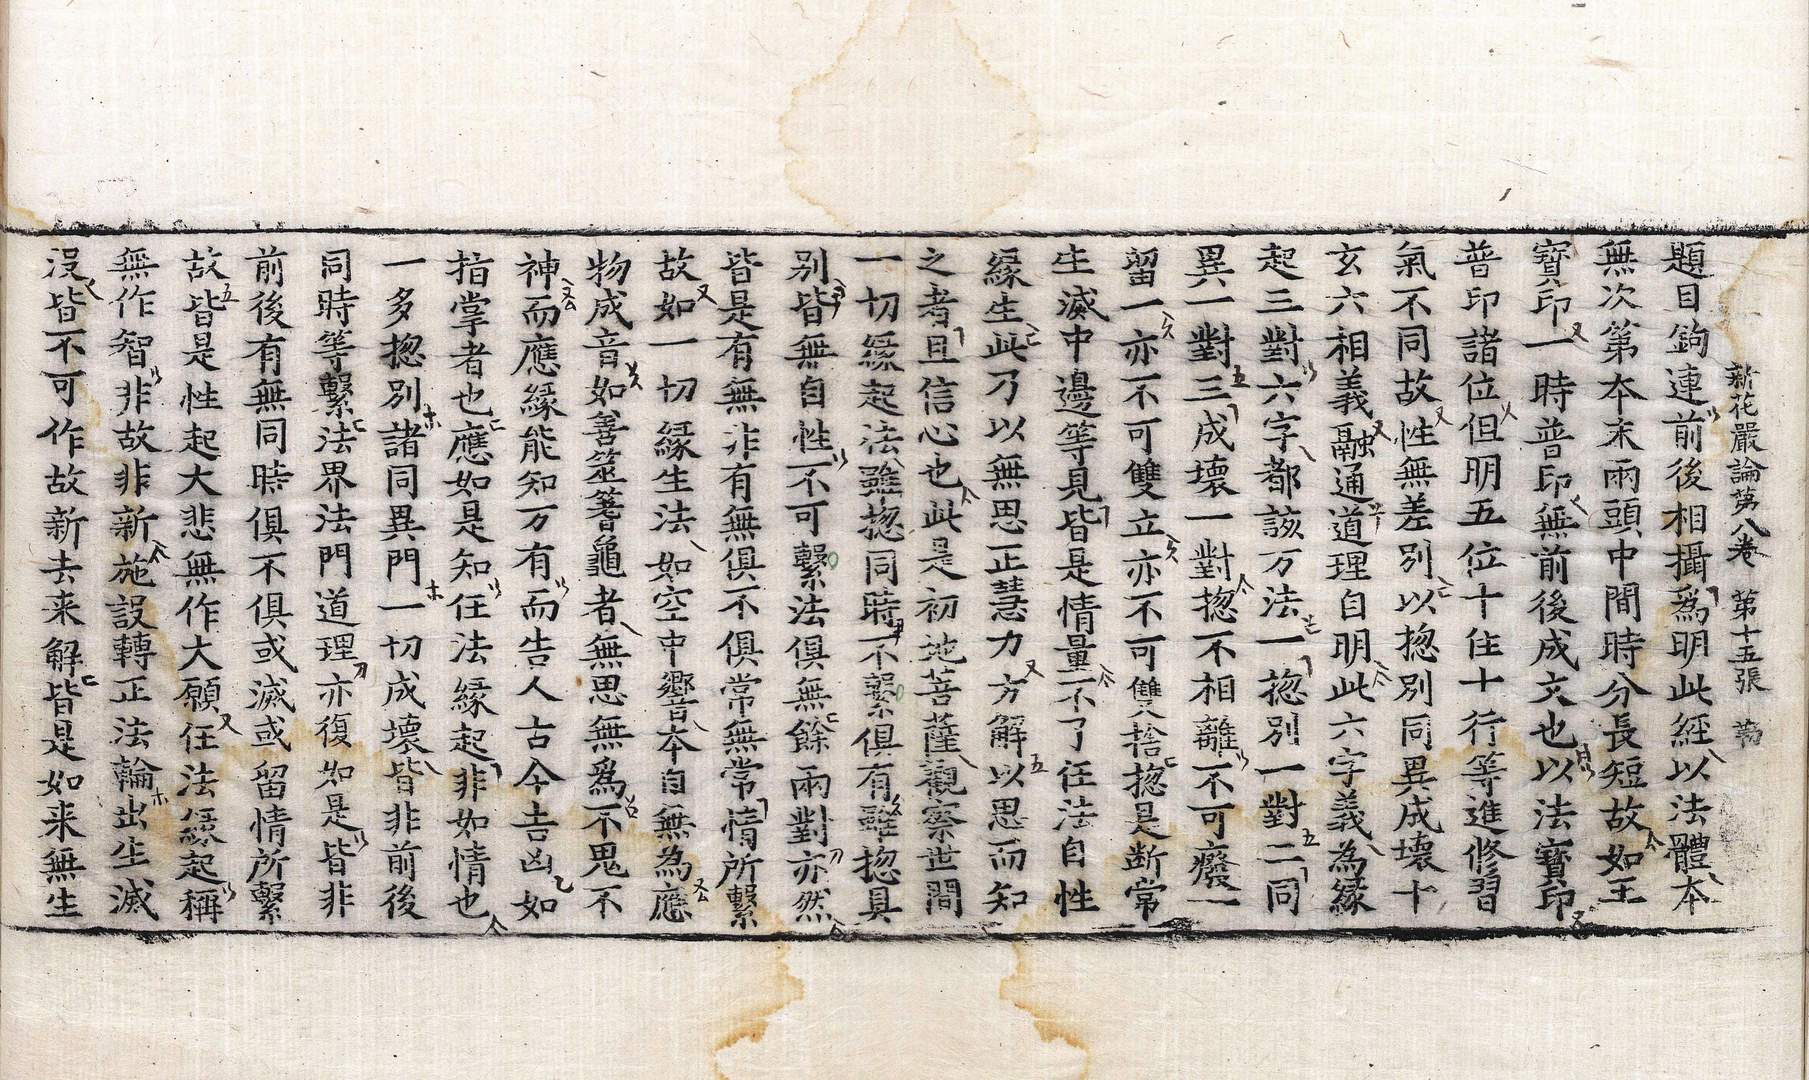 新花嚴論第八卷 第十五張
題目鉤連前後相攝爲明此經以法體本
無次第本末兩頭中間時分長短故如王
寶印一時普印無前後成文也以法寶印
普印諸位但明五位十住十行等進修習
氣不同故性無差別以揔別同異成壞十
玄六相義融通道理自明此六字義為緣
起三對六字都該万法一揔別一對二同
異一對三成壞一對揔不相離不可癈一
留一亦不可雙立亦不可雙捨揔是断常
生滅中邊等見皆是情量不了任法自性
緣生此乃以無思正慧力方解以思而知
之者且信心也此是初地菩薩觀察世間
一切緣起法雖揔同時不繫俱有雖揔具
別皆無自性不可繫法俱無餘兩對亦然
皆是有無非有無俱不俱常無常情所繫
故如一切緣生法如空中響本自無為應
物成音如善筮蓍龜者無思無爲不鬼不
神而應緣能知万有而告人古今吉凶如
指掌者也應如是知任法緣起非如情也
一多揔別諸同異門一切成壞皆非前後
同時等繫法界法門道理亦復如是皆非
前後有無同時俱不俱或滅或留情所繫
故皆是性起大悲無作大願任法緣起稱
無作智非故非新施設轉正法輪出生滅
沒皆不可作故新去来解皆是如来無生